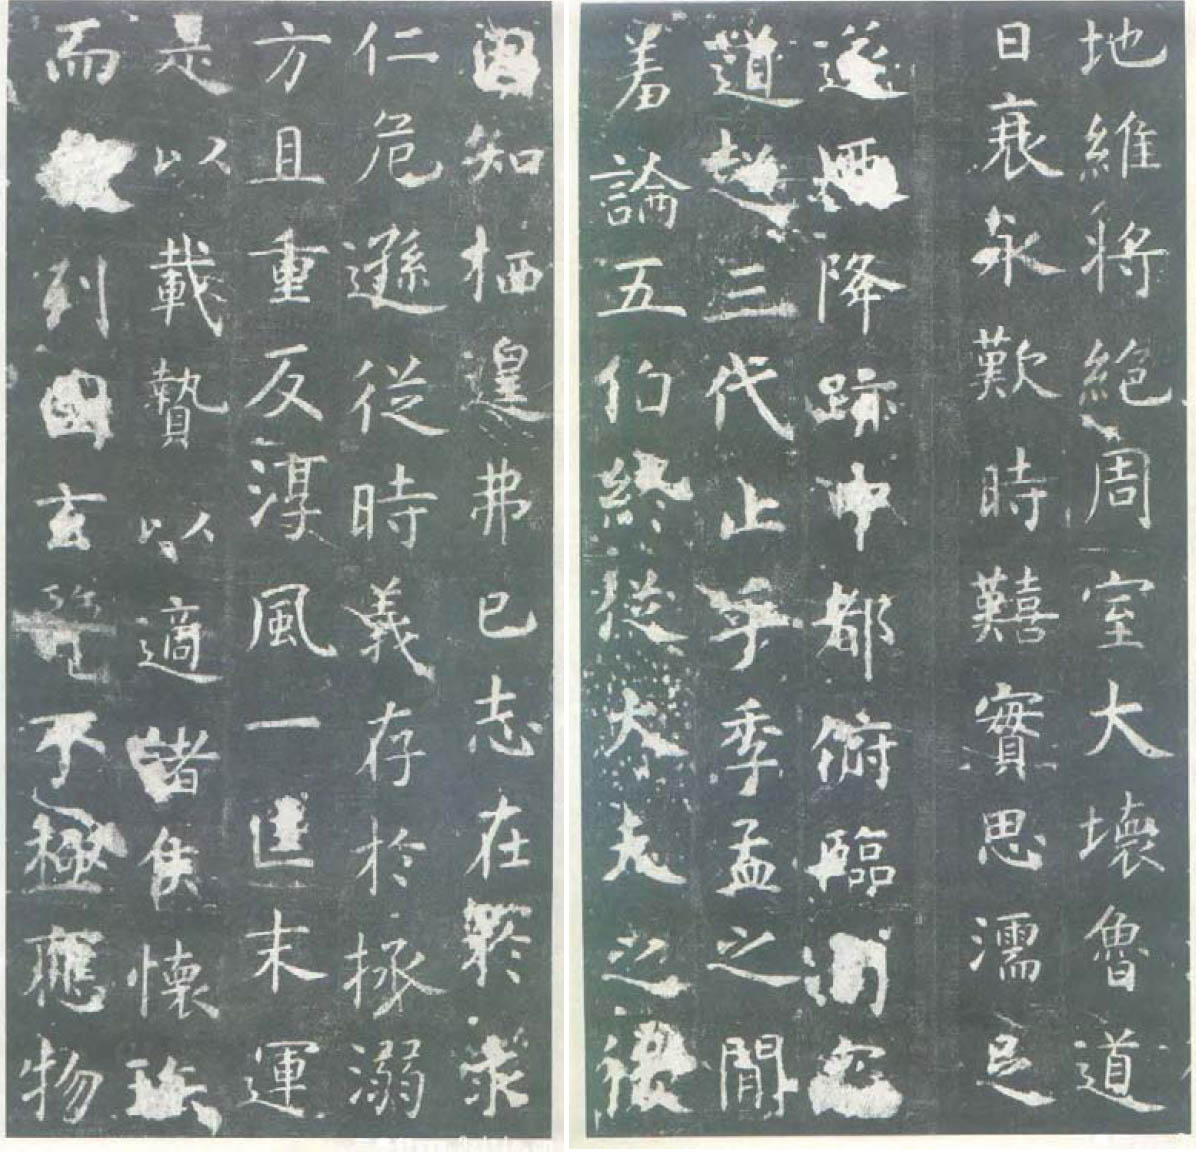 地維將絕周室大壞魯道
日衰永歎時囏實思濡足
遂廼降跡中都俯臨司寇
道超三代止乎季孟之閒
羞論五伯終從大夫之後
固知栖遑弗已志在於求
仁危遜從時義存於拯溺
方且重反淳風一匡末運
是以載贄以適諸侯懷珤
而列國玄覽不極應物